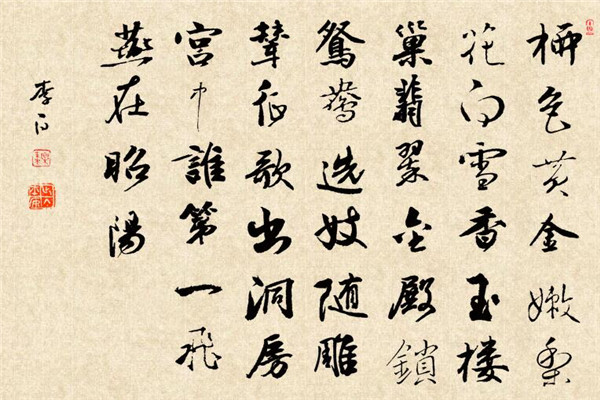 柳色黄金嫩梨
花白雪香玉楼
巢翡翠金殿鎖
鴛鴦选妓随雕
輦征歌出洞房
宫中誰第一飛
燕在昭陽
李白